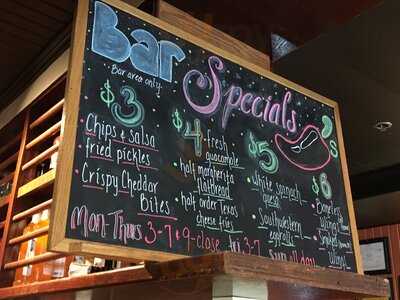 Bar Specials
Bar area only
$3
Chips & salsa
fried pickles
Crispy Cheddar
Bites
$4
fresh
guacamole
half margherita
flatbread
half order Texas
cheese fries
$5
white spinach
queso
Southwestern
eggrolls
$6
Boneless
wings
Mon-Thurs 3-7 9-close fri 3-7
Sun all day